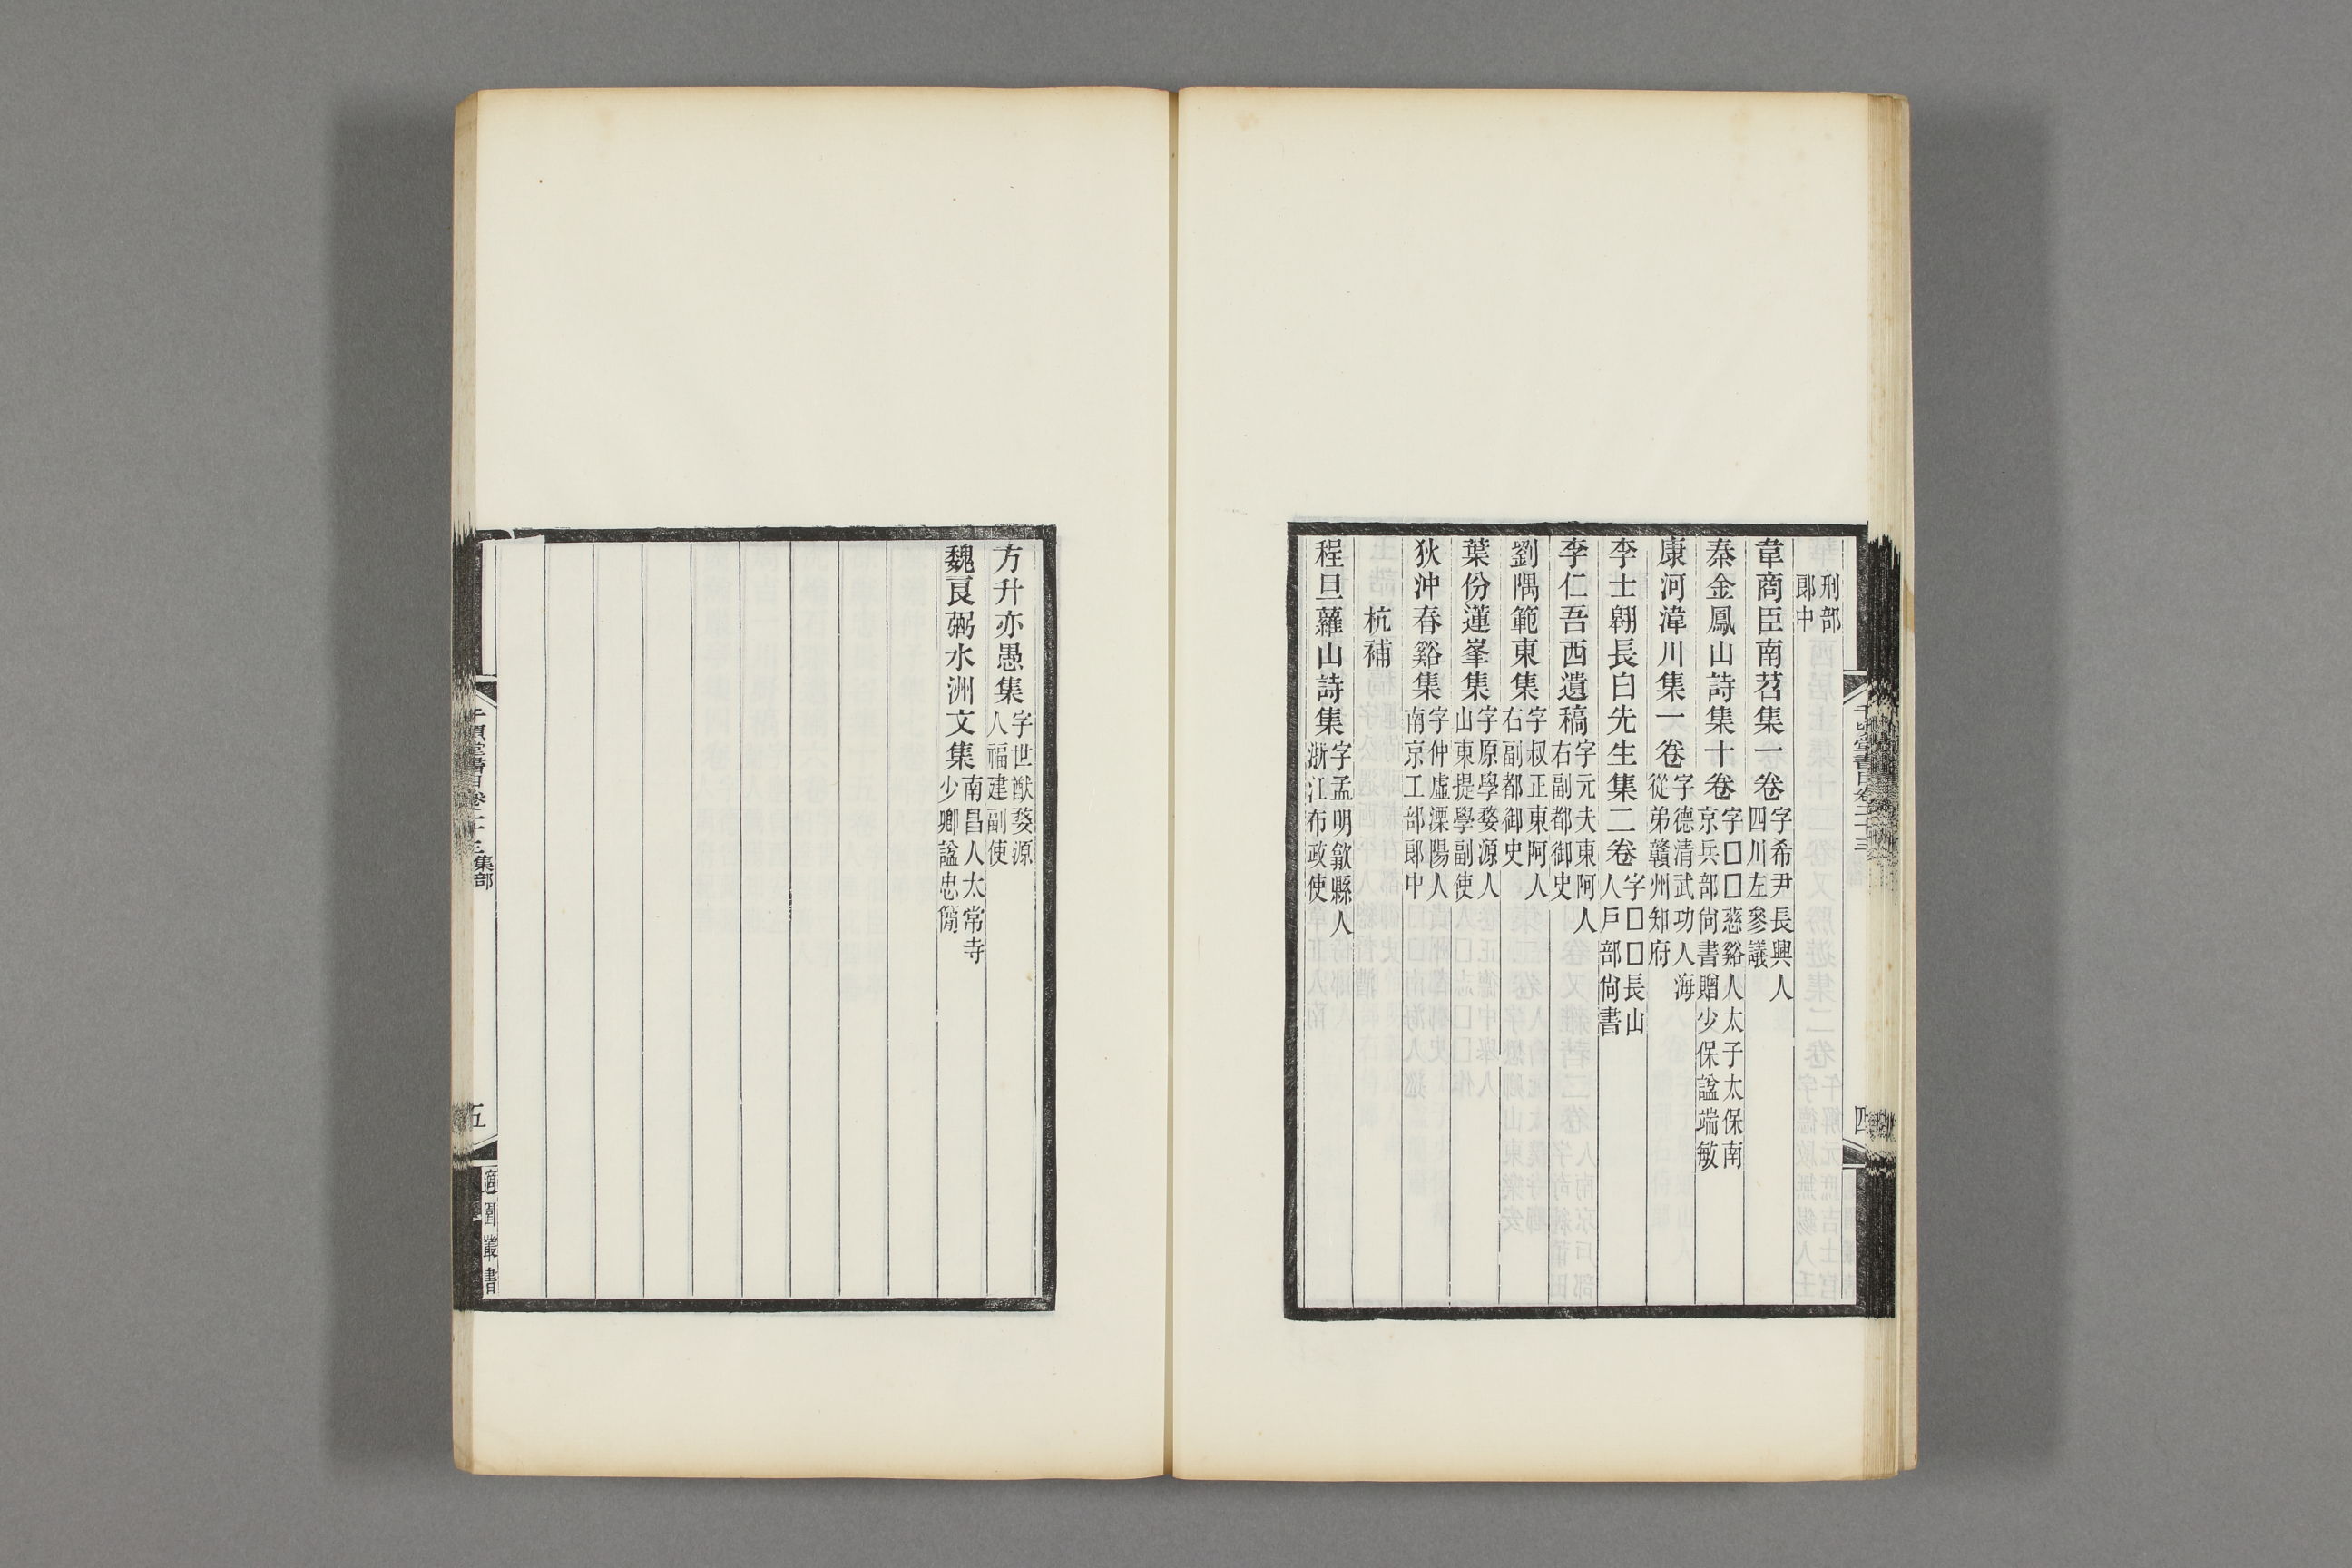 刑部
郎中
韋商臣南苕集一卷字希尹長興人
四川左參議
秦金鳳山詩集十卷字□□慈谿人太子太保南
京兵部尙書贈少保諡端敏
康河漳川集一卷字德清武功人海
從弟贛州知府
李士翱長白先生集二卷字□□長山
人戶部尙書
李仁吾西遺稿字元夫東阿人
右副都御史
劉隅範東集字叔正東阿人
右副都御史
葉份蓮峯集字原學婺源人
山東提學副使
狄沖春谿集字仲虛溧陽人
南京工部郎中
杭補
程旦蘿山詩集字孟明歙縣人
浙江布政使
千頃堂書目卷二十三
四
方升亦愚集字世猷婺源
人福建副使
魏良弼水洲文集南昌人太常寺
少卿諡忠簡
千頃堂書目卷二十三集部
五
適園叢書